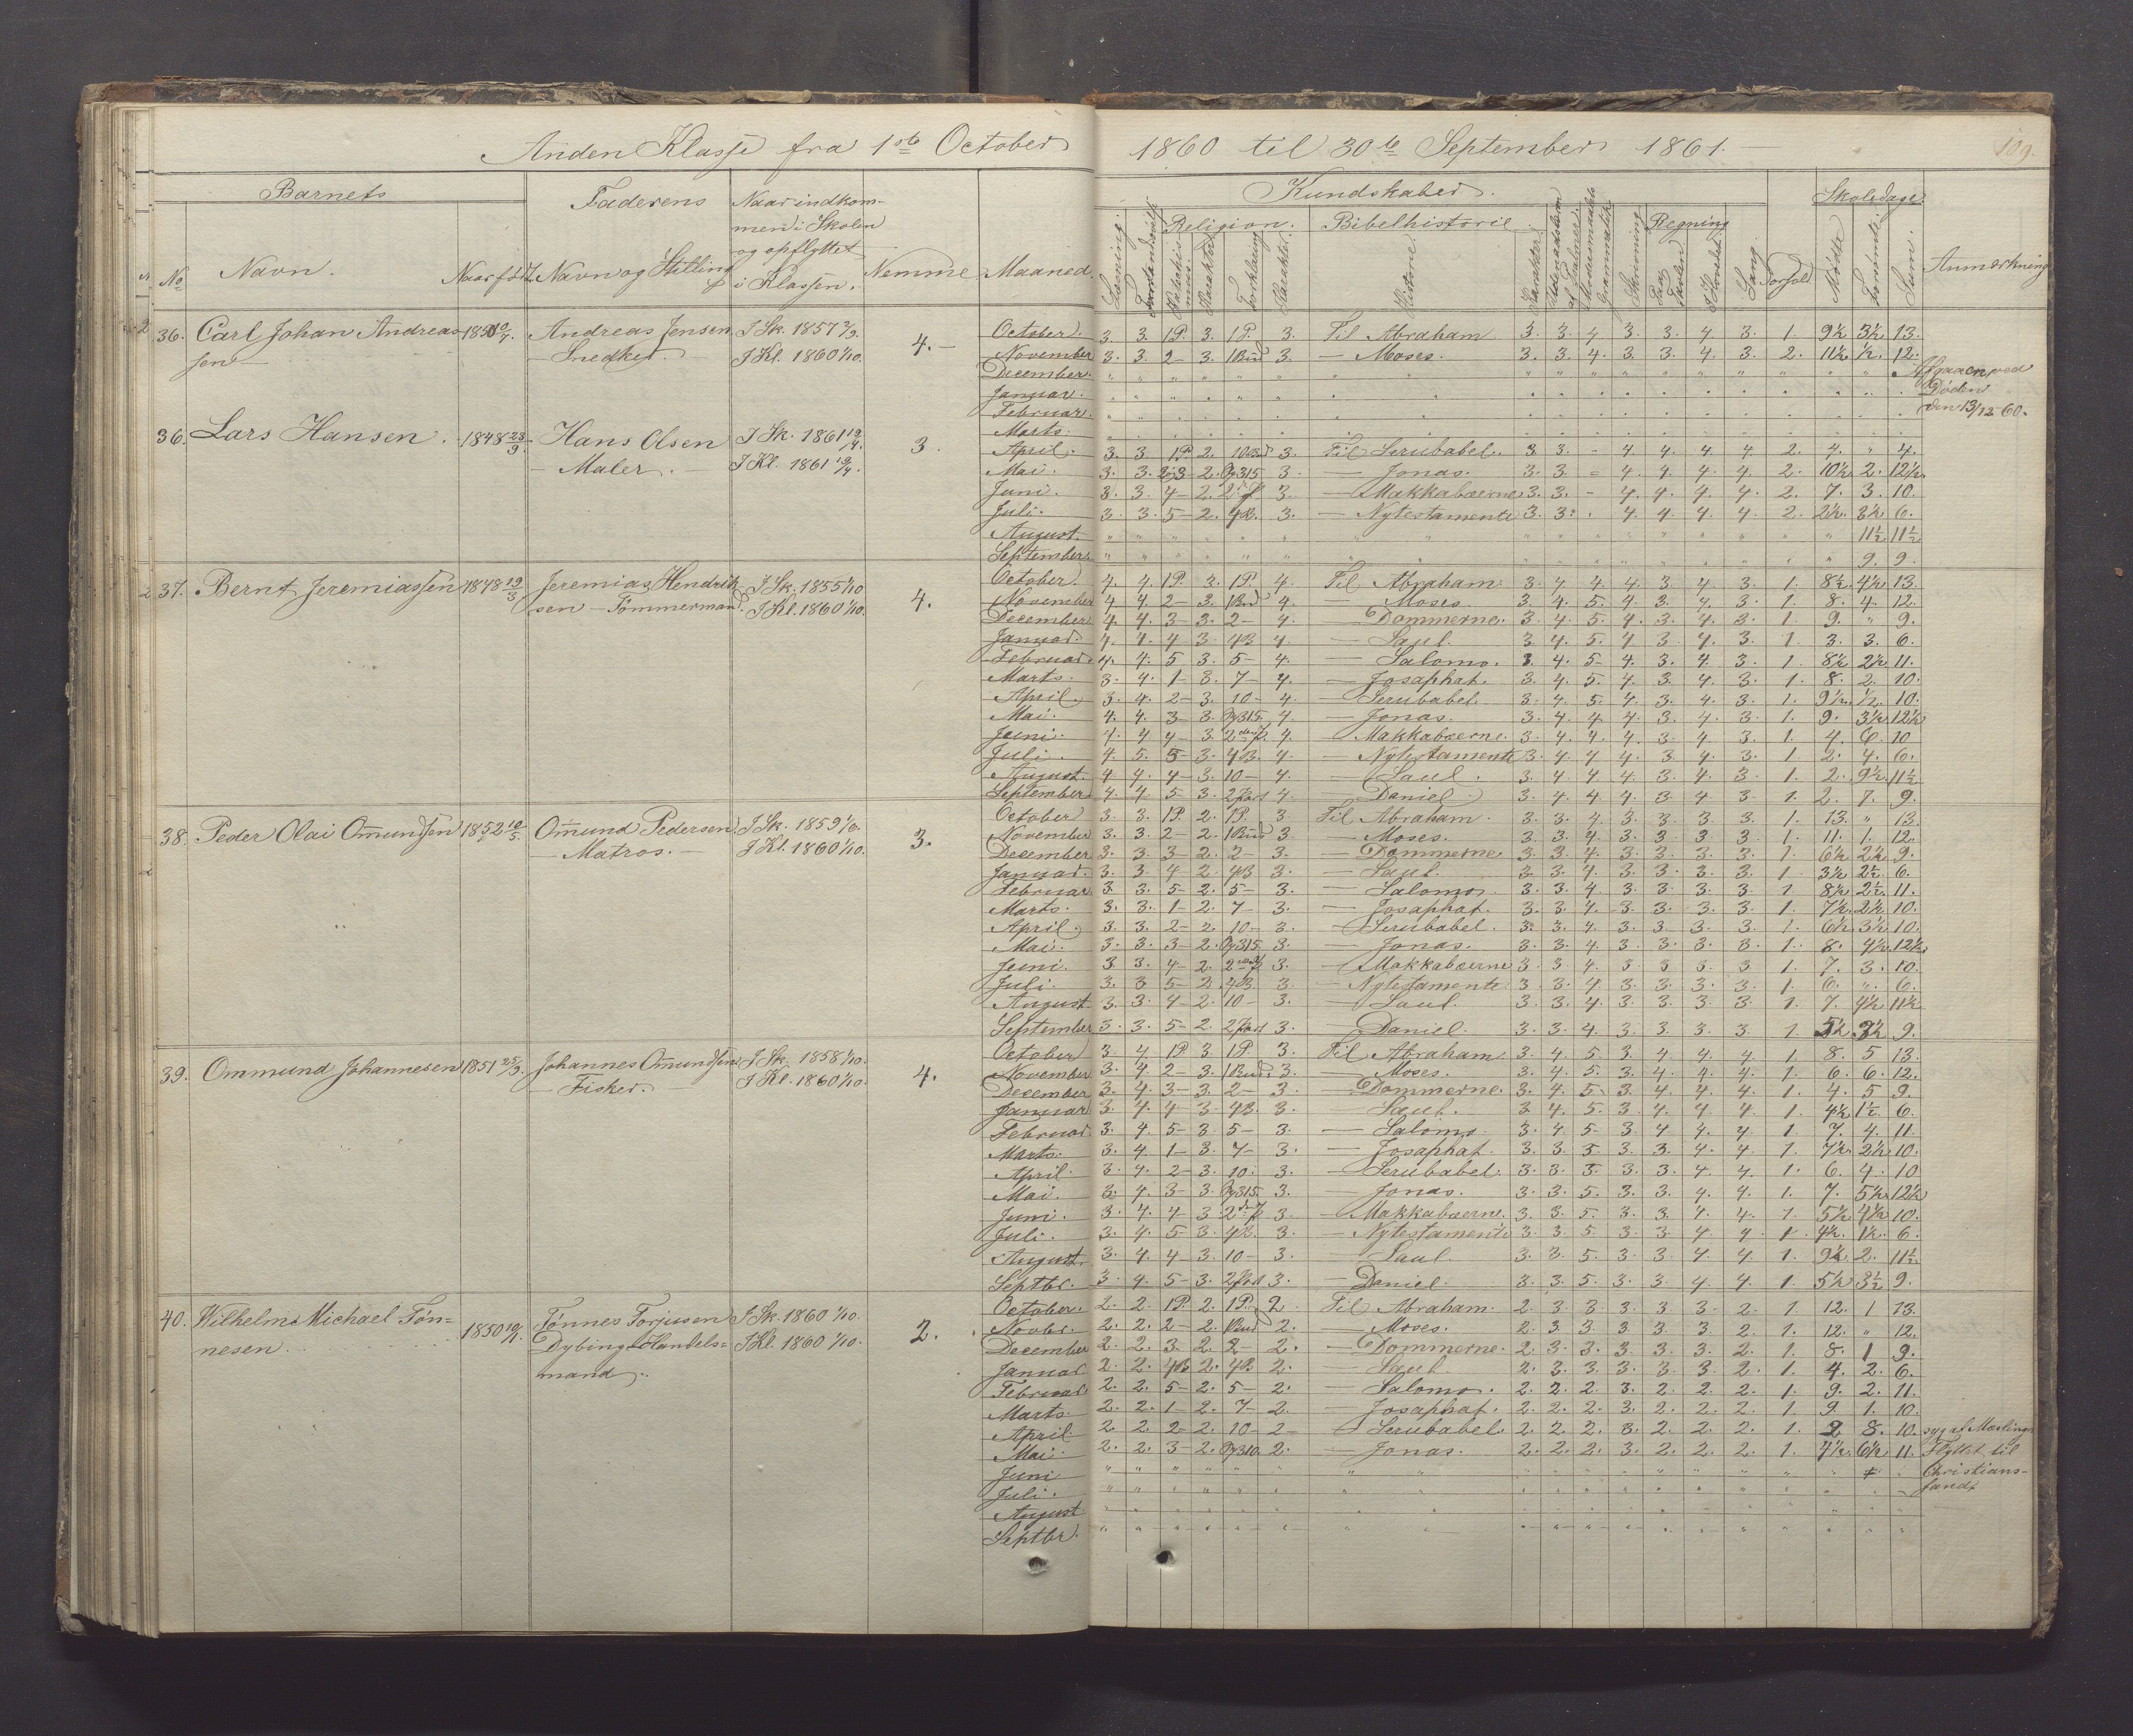 Anden Klasse fra 1ste October 1860 til 30te September 1861.
109.
Barnets
Faderens
Naar indkommen i Skolen og opflyttet i Klassen.
Kundskaber.
Skoledage
No Navn. Naar født Navn og Stilling Nemme Maaned.
Læsning. Religion. Forklaring Karakter. Bibelhistorie Historie. Karakter. Modersmaalets Grammatik Skrivning Regning Sang. Forhold Mødte Forsømte Sum. Anmærkning
36. Carl Johan Andreassen Andreas Jensen – Snedker. I Sk. 1857 I Kl. 1860 1/10. 4.
October. 3. 3. 1P. 3. 1P. 3. Til Abraham 3. 3. 4 3. 3. 4. 3. 1. 9½ 3½ 13.
November 3. 3. 2 – 3. 1Bud 3. – Moses. 3. 3. 4. 3. 3. 4. 3. 2. 11½ ½. 12.
December. Afgaaen ved
Januar. Døden
Februar. den 13/12 60.
Marts.
36. Lars Hansen. 1848 23/9. Hans Olsen – Maler. – I Sk. 1861 19/4. I Kl. 1861 19/4. 3.
April. 3. 3. 1P 2. 10Bud 3. Til Serubabel. 3. 3. – 4. 4. 4. 4. 2. 4. " 4.
Mai. 3. 3. 2 3 – 2. 3. – Jonas. 3. 3 4. 4. 4. 4. 2. 10½ 2. 12½
Juni. 3. 3. 4 – 2. 3. – Makkabæerne 3. 3. – 4. 4. 4. 4. 2. 7. 3. 10.
Juli. 3. 3. 5 – 2. 4B. 3. – Nytestamente 3. 3. 4. 4. 4. 4. 2. 2½. 3½ 6.
August. 11½ 11½
September. 9. 9.
37. Bernt Jeremiassen 1848 19/3 Jeremias Hendriksen – Tømmermand. I Sk. 1855 1/10 I Kl. 1860 1/10. 4.
October. 4. 4. 1P. 3. 1P. 4. Til Abraham. 3. 4. 4. 4. 3. 4. 3. 1. 8½ 4½ 13.
November 4 4. 2 – 3. 1Bud 4. – Moses. 3. 4. 5. 4. 3. 4. 3. 1. 8. 4. 12.
December 4. 4. 3 – 3. 2 – 4. – Dommerne. 3. 4. 5. 4. 3. 4. 3. 1. 9. " 9.
Januar. 4. 4. 4 3. 4B 4. – Saul. 3 4. 5. 4 3 4. 3 1 3. 3. 6.
Februar. 4. 4. 5 3. 5 – 4. – Salomo. 3. 4. 5 – 4. 3. 4. 3. 1. 8½ 2½ 11.
Marts. 3. 4. 1 – 3. 7 – 4. – Josaphat. 3. 4. 5. 4. 3 4. 3. 1. 8. 2. 10.
April. 3. 4. 2 – 3. 10 – 4. – Serubabel. 3. 4. 5. 4. 3. 4. 3. 1. 9½. ½. 10.
Mai. 4. 4. 3 3. 4. – Jonas. 3. 4. 4. 4. 3. 4. 3. 1. 9. 3½ 12½
Juni. 4. 4 4 – 3. 4. – Makkabæerne. 3. 4. 4. 4. 3. 4. 3. 1. 4. 6. 10
Juli. 4. 5. 5 – 3. 4B. 4. – Nytestamente 3. 4. 4 4. 3. 4. 3. 1 2. 4. 6.
August. 4 4. 4 – 3. 10 – 4. – Saul. 3. 4 4 4. 3. 4. 3. 1. 2. 9½ 11½
September 4. 4. 5 – 3. 4. – Daniel 3. 4. 4 4. 3. 4. 3. 1. 2. 7. 9.
38. Peder Olai Omundsen 1852 Omund Pedersen – Matros. – I Sk. 1859 I Kl. 1860 1/10. 3.
October 3. 3. 1P. 2. 1P. 3 Til Abraham. 3. 3. 4. 3. 3. 3. 3. 1. 13. " 13.
November 3. 3. 2 – 2. 1Bud 3. – Moses. 3. 3. 4. 3. 3. 3. 3. 1. 11. 1. 12.
December 3. 3. 3 – 2. 2 – 3. – Dommerne 3. 3. 4. 3. 3. 3. 3. 1. 6½ 2½ 9.
Januar. 3. 3. 4 2. 4B 3. – Saul. 3. 3. 4. 3. 3. 3. 3. 1. 3½ 2½. 6.
Februar. 3. 3. 5 – 2. 5 – 3. – Salomo 3. 3. 4 3. 3. 3. 3 1 8½ 2½ 11.
Marts. 3. 3. 1 – 2. 7 – 3. – Josaphat. 3. 3. 4. 3. 3. 3. 3. 1. 7½. 2½ 10.
April. 3. 3. 2 – 2. 10 – 3. – Serubabel. 3. 3. 4. 3. 3. 3. 3 1. 6½. 3½ 10.
Mai. 3. 3. 3 – 2. 3. – Jonas. 3. 3. 4. 3. 3. 3. 3. 1. 8. 4½. 12½
Juni. 3. 3. 4 – 2. 3. – Makkabæerne 3. 3 4. 3. 3 3. 3 1. 7. 3. 10.
Juli. 3. 3 5 – 2. 4B. 3. – Nytestamente. 3. 3. 4. 3. 3. 3. 3 1. 6. " 6.
August. 3. 3. 4 – 2. 10 – 3. – Saul. 3. 3. 4. 3. 3. 3. 3. 1. 7. 4½ 11½
September 3. 3. 5 – 2. 3. – Daniel. 3. 3. 4. 3. 3. 3. 3. 1. 5½ 3½ 9.
39. Ommund Johannesen 1851 25/9. Johannes Omundsen – Fisker. I Sk. 1858 1/10. I Kl. 1860 1/10. 4.
October 3. 4. 1P 3 1P. 3. Til Abraham 3. 4. 5. 3. 4. 4. 4. 1. 8. 5 13.
November 3. 4. 2 – 3. 1Bud. 3. – Moses. 3. 4. 5. 3. 4. 4. 4. 1. 6. 6. 12.
December 3. 4. 3 – 3. 2 – 3. – Dommerne. 3. 4. 5. 3. 4. 4. 4. 1. 4. 5 9.
Januar 3. 4. 4 3. 4B. 3. – Saul. 3 4. 5. 3. 4. 4. 4. 1. 4½ 1½. 6.
Februar 3. 4. 5 – 3. 5 – 3. – Salomo 3. 4. 5 – 3. 4 4. 4 1. 7. 4. 11
Marts. 3. 4. 1 – 3. 7 – 3. – Josaphat 3. 3. 5. 3. 3. 4. 4 1. 7½. 2½ 10.
April. 3. 4. 2 – 3. 10. 3. – Serubabel. 3. 3. 5. 3. 3. 4. 4. 1. 6. 4. 10
Mai. 3. 4. 3 – 3. 3. – Jonas. 3. 3. 5. 3. 3. 4. 4. 1. 7. 5½ 12½
Juni. 3. 4. 4 – 3. 3. – Makkabæerne. 3. 3. 5. 3. 3. 4. 4. 1. 5½ 4½ 10.
Juli. 3. 4. 5 – 3. 4B. 3. – Nytestamente 3. 3 5. 3. 3. 4. 4 1. 4½. 1½. 6.
August. 3. 4. 4 3. 10 – 3. – Saul. 3. 3. 5. 3 3. 4. 4. 1. 9½ 2. 11½
Septbr. 3. 4. 5 – 3. 3. – Daniel. 3. 3. 5. 3. 3. 4. 4. 1. 5½ 3½ 9.
40. Wilhelm Michael Tønnesen. 1850 Tønnes Torjusen Dybing – Handelsmand. I Sk. 1860 1/10. I Kl. 1860 1/10. 2.
October. 2. 2. 1P. 2. 1P. 2 Til Abraham. 2. 3. 3. 3. 3 3. 2. 1. 12. 1 13.
Novbr. 2. 2. 2 – 2. 1Bud 2. – Moses. 2. 3. 3. 3. 3. 3. 2. 1. 12. " 12.
December 2. 2. 3. 2. 2 – 2. – Dommerne. 2. 3. 3. 3. 3. 3. 2. 1. 8. 1 9.
Januar 2. 2. 4B 2. 4B. 2. – Saul. 2. 3. 3. 3. 3. 3. 2. 1. 4. 2. 6.
Februar 2. 2. 5 – 2. 5 – 2. – Salomo. 2. 2. 2. 3. 2. 2. 2. 1. 9. 2. 11.
Marts. 2. 2. 1 – 2. 7 – 2. – Josaphat. 2. 2. 2. 3. 2. 2. 2. 1. 9. 1. 10.
April 2. 2. 2 – 2. 10 – 2 – – Serubabel. 2. 2. 2. 3. 2. 2. 2. 1. 2 8. 10. syg af Mæslinger
Mai. 2. 2. 3 – 2. 2. – Jonas. 2. 2. 2. 3. 2. 2. 2. 1. 4½. 6½ 11. Flyttet til
Juni Christians-
Juli. sand.
August
Septbr.